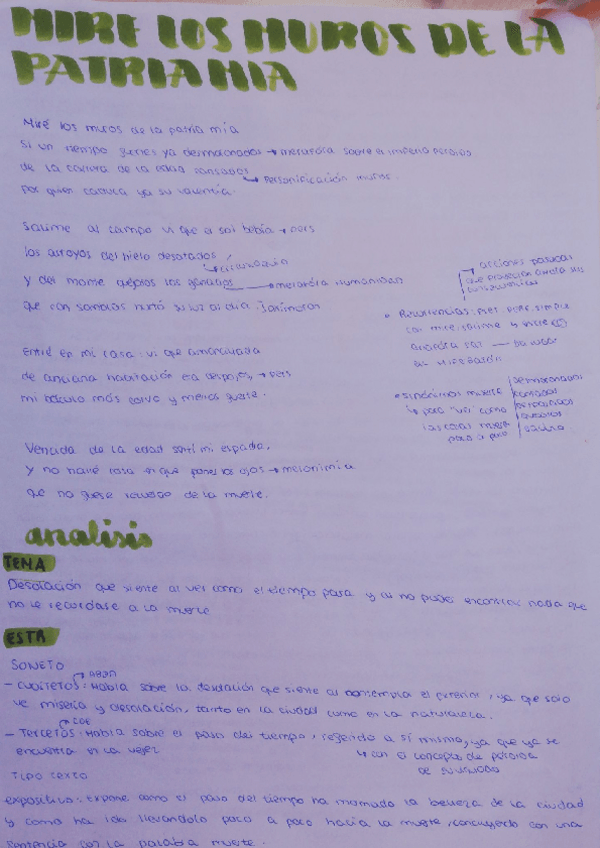 MIRE LOS MUROS DE LA
PATRIA MIA
Miré los muros de la patria mia
si un tiempo fuertes ya desmoronados → metafora sobre el imperio perdido
de la carrera de la edad cansados → personificación muros
por quien caduca ya su valentia.
Salime al campo vi que el sol bebia → pers
los arroyos del hielo desatados,
y del monte quejosos los ganados → metafora humanidad
que con sombras hurtó su luz al dia.
Entré en mi casa: vi que amancillada
de anciana habitación era despojos, → pers
mi báculo más corvo y menos fuerte.
Vencida de la edad sentí mi espada,
y no hallé cosa en que poner los ojos → metonimia
que no fuese recuerdo de la muerte.
acciones pasadas
que
Recurrencias: pret. perf. simple
con mire, salime y entre
anafora
sinónimos muerte
desmoronados
cansados
despojos
para "ver" como
las cosas mueren
poco a poco
analisis
TEMA
Desolación que siente al ver como el tiempo pasa y al no poder encontrar nada que
no le recordase a la muerte
ESTR
SONETO
ABBA
- Cuartetos: Habla sobre la desolación que siente al contemplar el exterior, ya que solo
ve miseria y desolación, tanto en la ciudad como en la naturaleza.
CDE
- Tercetos: Habla sobre el paso del tiempo, referido a sí mismo, ya que ya se
encuentra en la vejez
→ con el concepto de perdida
de
TIPO TEXTO
expositivo: Expone como el paso del tiempo ha mermado la belleza de la ciudad
y como ha ido llevandolo poco a poco hacia la muerte, concluyendo con una
sentencia con la palabra muerte.